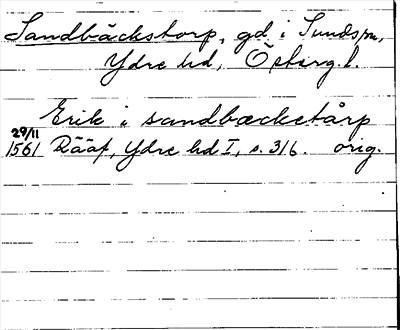 Sandbäckstorp, gd i Sunds sn,
Ydre hd, Österg. l.
Erik i sandbæcketårp
29/11
1561 Rääf, Ydre hd I, s. 316. orig.